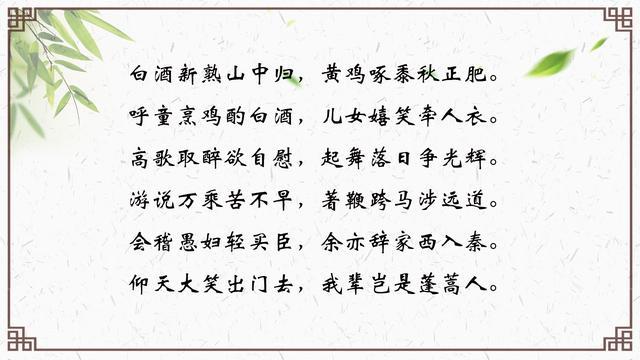 白酒新熟山中归，黄鸡啄黍秋正肥。
呼童烹鸡酌白酒，儿女嬉笑牵人衣。
高歌取醉欲自慰，起舞落日争光辉。
游说万乘苦不早，著鞭跨马涉远道。
会稽愚妇轻买臣，余亦辞家西入秦。
仰天大笑出门去，我辈岂是蓬蒿人。